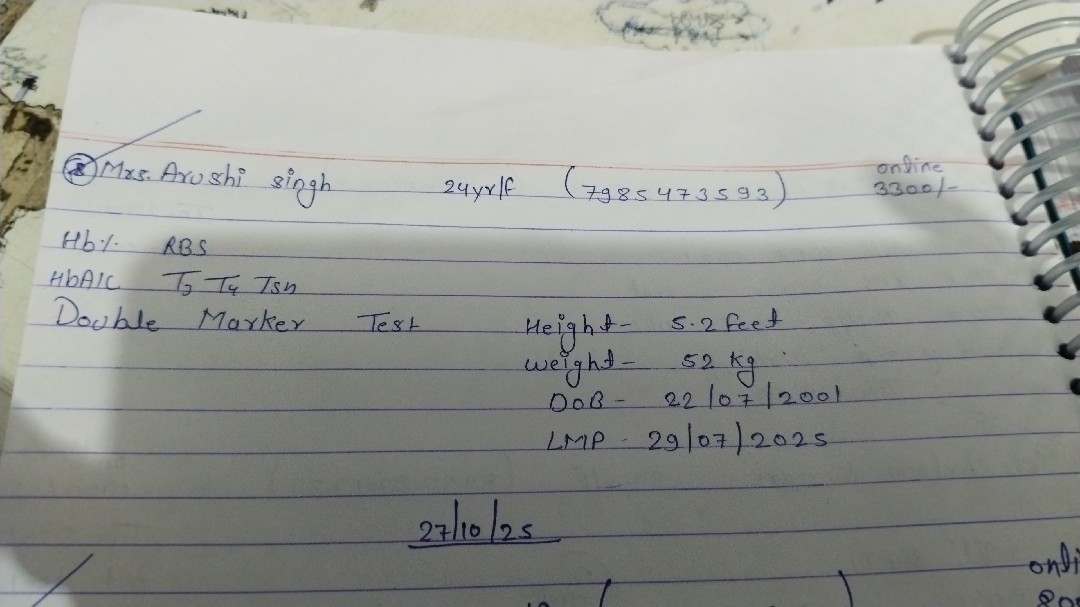 8 Mrs. Arushi singh 24yr/f (7985473593) online 3300/-
Hb%. RBS
HbA1C T3 T4 Tsh
Double Marker Test Height - 5.2 feet
weight - 52 kg
DOB - 22/07/2001
LMP - 29/07/2025
27/10/25